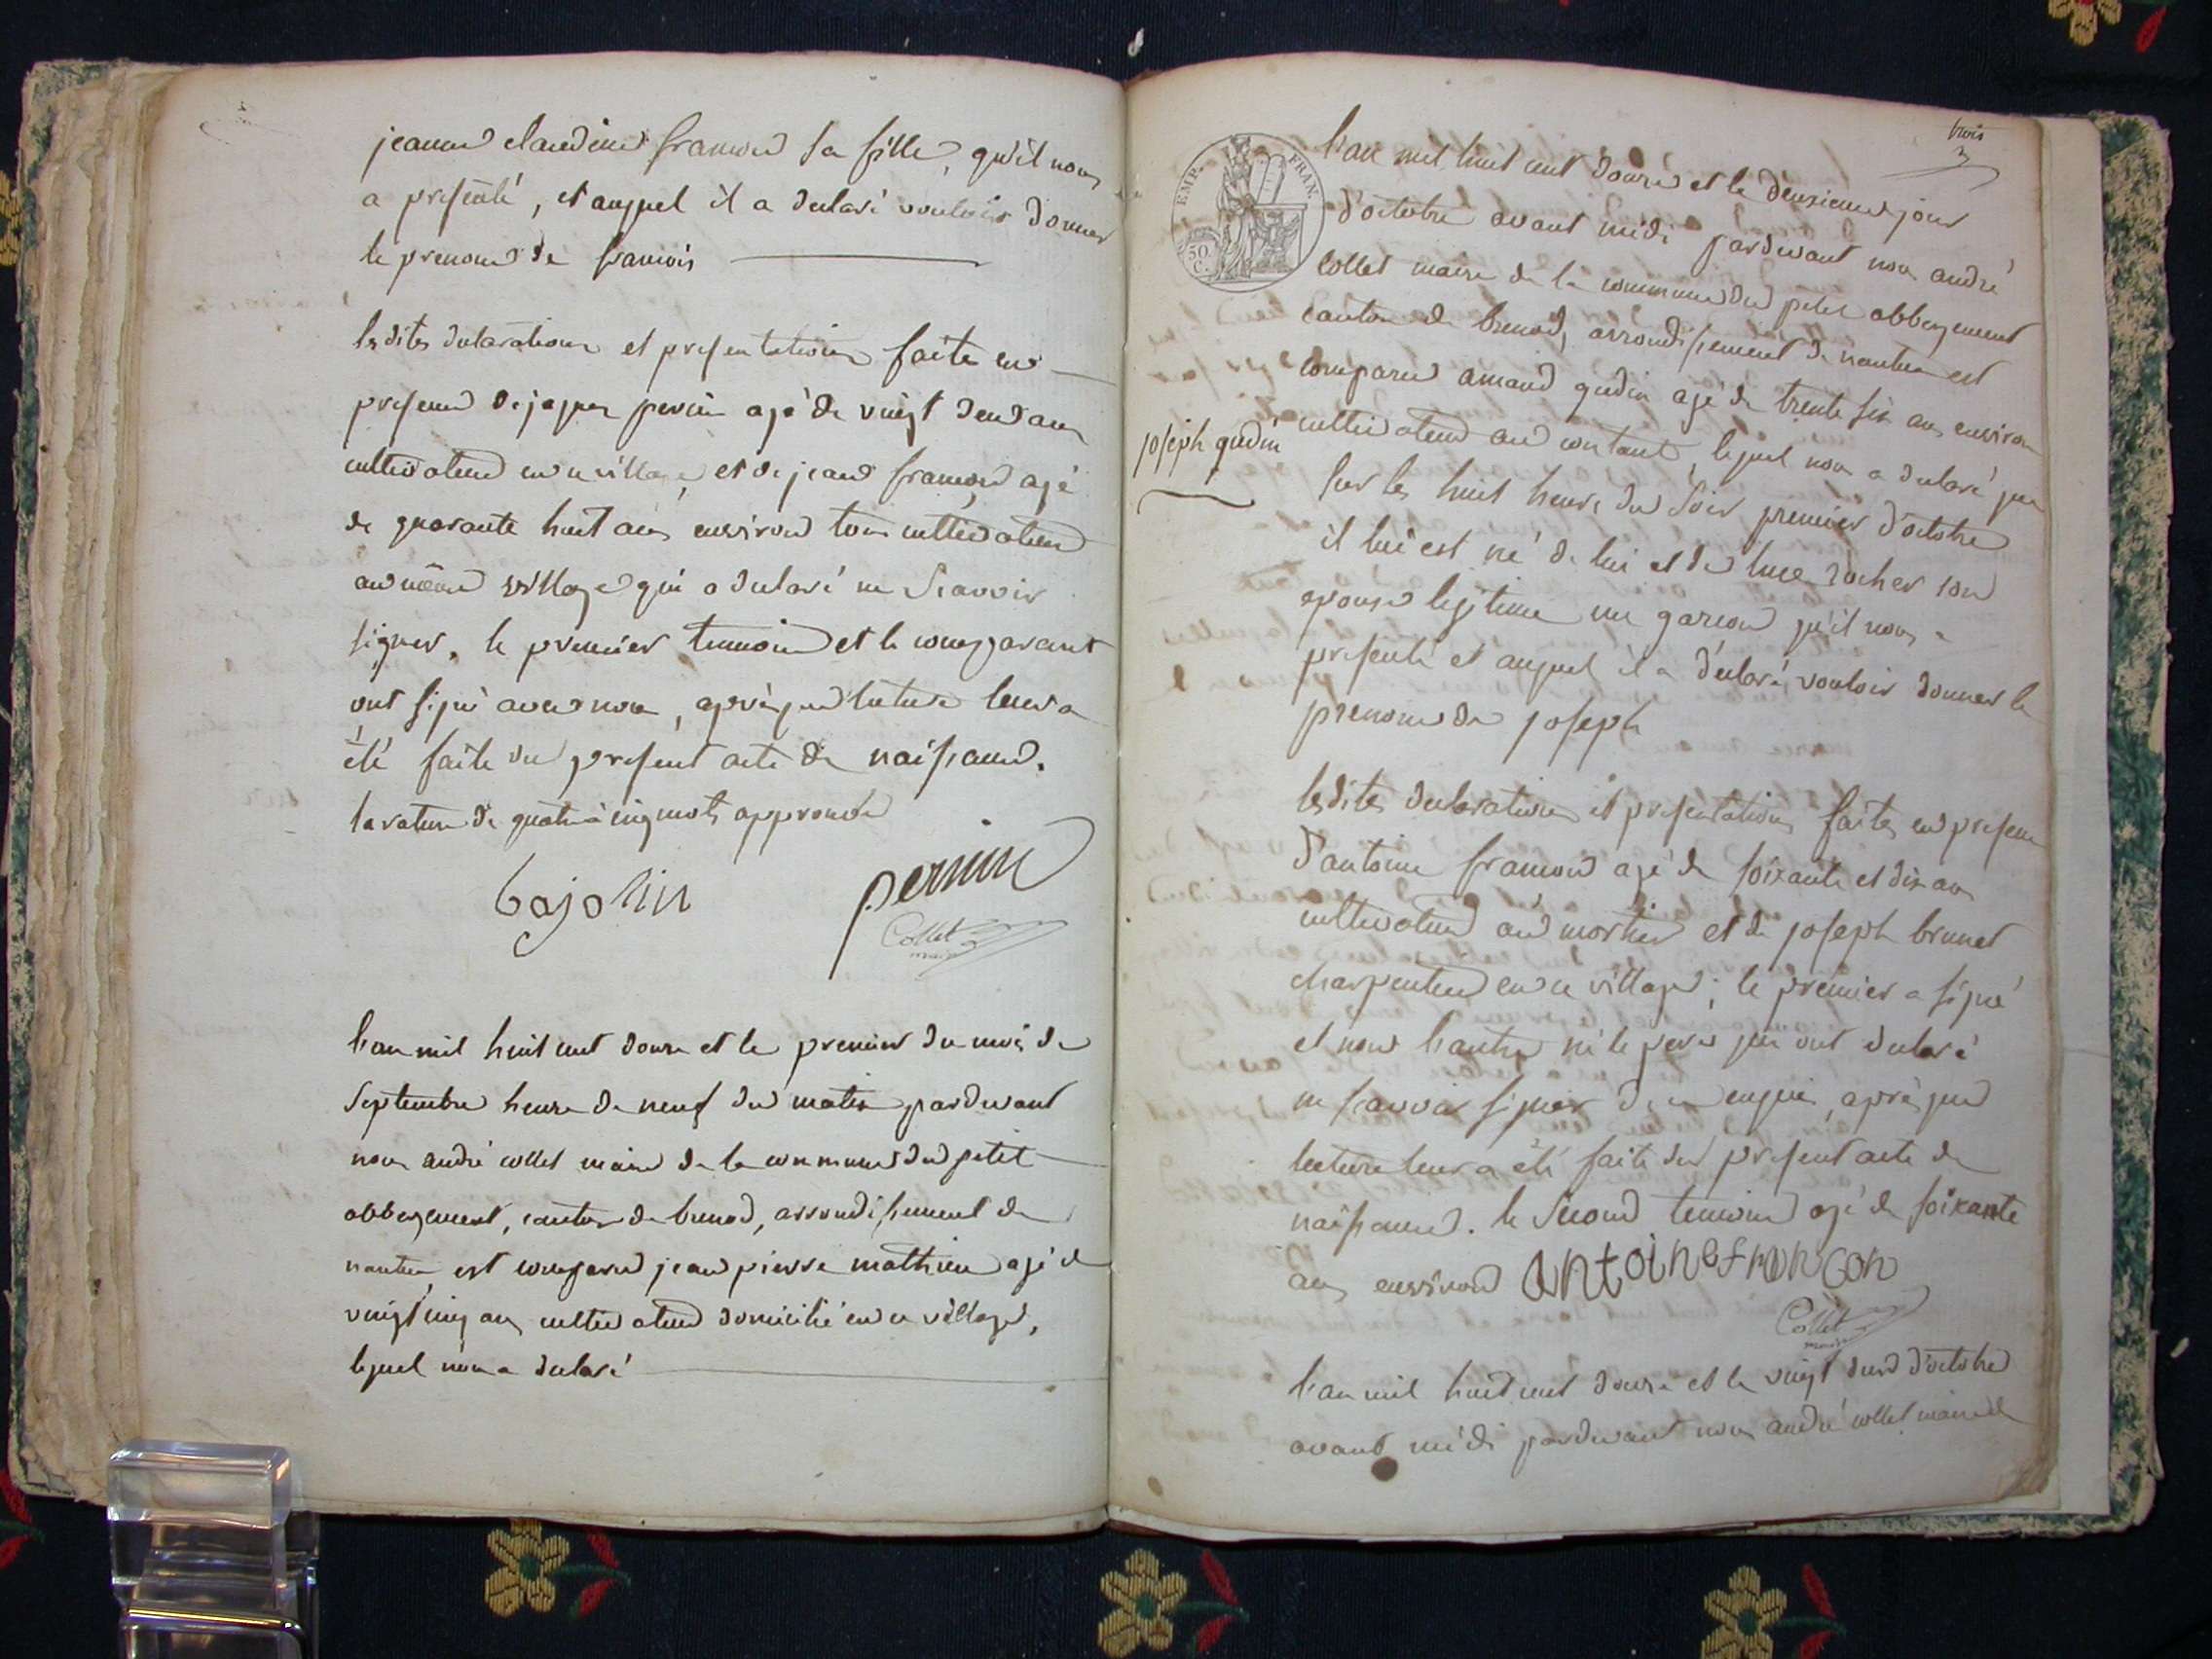 jeanne claudine francon sa fille, qu'il nous
a presenté, et auquel il a declaré vouloir donner
le prenom de francois
lesdites declaration et presentation faite en
presence de jaques perrin agé de vingt deux ans
cultivateur en ce village, et de jean francon agé
de quarante huit ans environ tous cultivateur
au même village qui a declaré ne scavoir
signer, le premier temoin et le comparant
ont signé avec nous, après que lecture leur a
été faite du present acte de naissance.
la rature de quatre à cinq mots approuvée
bajolin
perrin
Collet
maire
l'an mil huit cent douze et le premier du mois de
septembre heure de neuf du matin pardevant
nous andré collet maire de la commune du petit
abbergement, canton de brenod, arrondissement de
nantua est comparu jean pierre mathieu agé de
vingt cinq ans cultivateur domicilié en ce village,
lequel nous a declaré
trois
3
EMP. FRAN.
50 C.
l'an mil huit cent douze et le deuxieme jour
d'octobre avant midi pardevant nous andré
collet maire de la commune du petit abbergement
canton de brenod, arrondissement de nantua est
comparu amand gudin agé de trente six ans environ
cultivateur au, lequel nous a declaré que
joseph gudin
sur les huit heures du soir premier d'octobre
il lui est né de lui et de luce rocher son
epouse legitime un garcon qu'il nous a
presenté et auquel il a declaré vouloir donner le
prenom de joseph
lesdites declaration et presentation faites en presence
d'antoine francon agé de soixante et dix ans
cultivateur au et de joseph brunet
charpentier en ce village; le premier a signé
et non l'autre ni le pere qui ont declaré
ne scavoir signer de ce enquis, après que
lecture leur a été faite du present acte de
naissance. le second temoin agé de soixante
ans environ antoine francon
Collet
maire
l'an mil huit cent douze et le vingt deux d'octobre
avant midi pardevant nous andré collet maire de